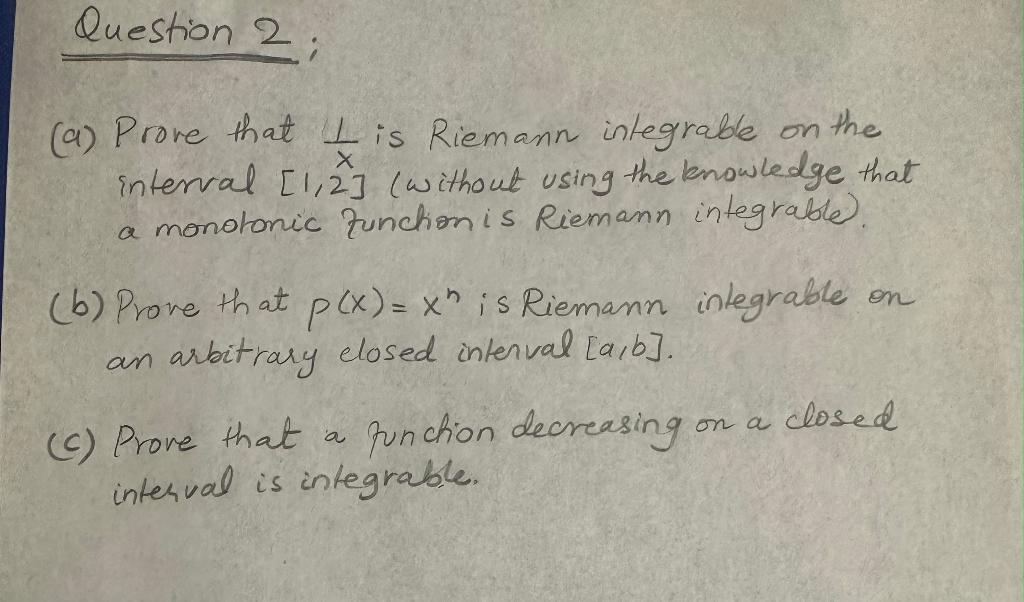 Question 2;
(a) Prove that 1/x is Riemann integrable on the
interval [1,2] (without using the knowledge that
a monotonic function is Riemann integrable).
(b) Prove that p(x) = xⁿ is Riemann integrable on
an arbitrary closed interval [a,b].
(c) Prove that a function decreasing on a closed
interval is integrable.